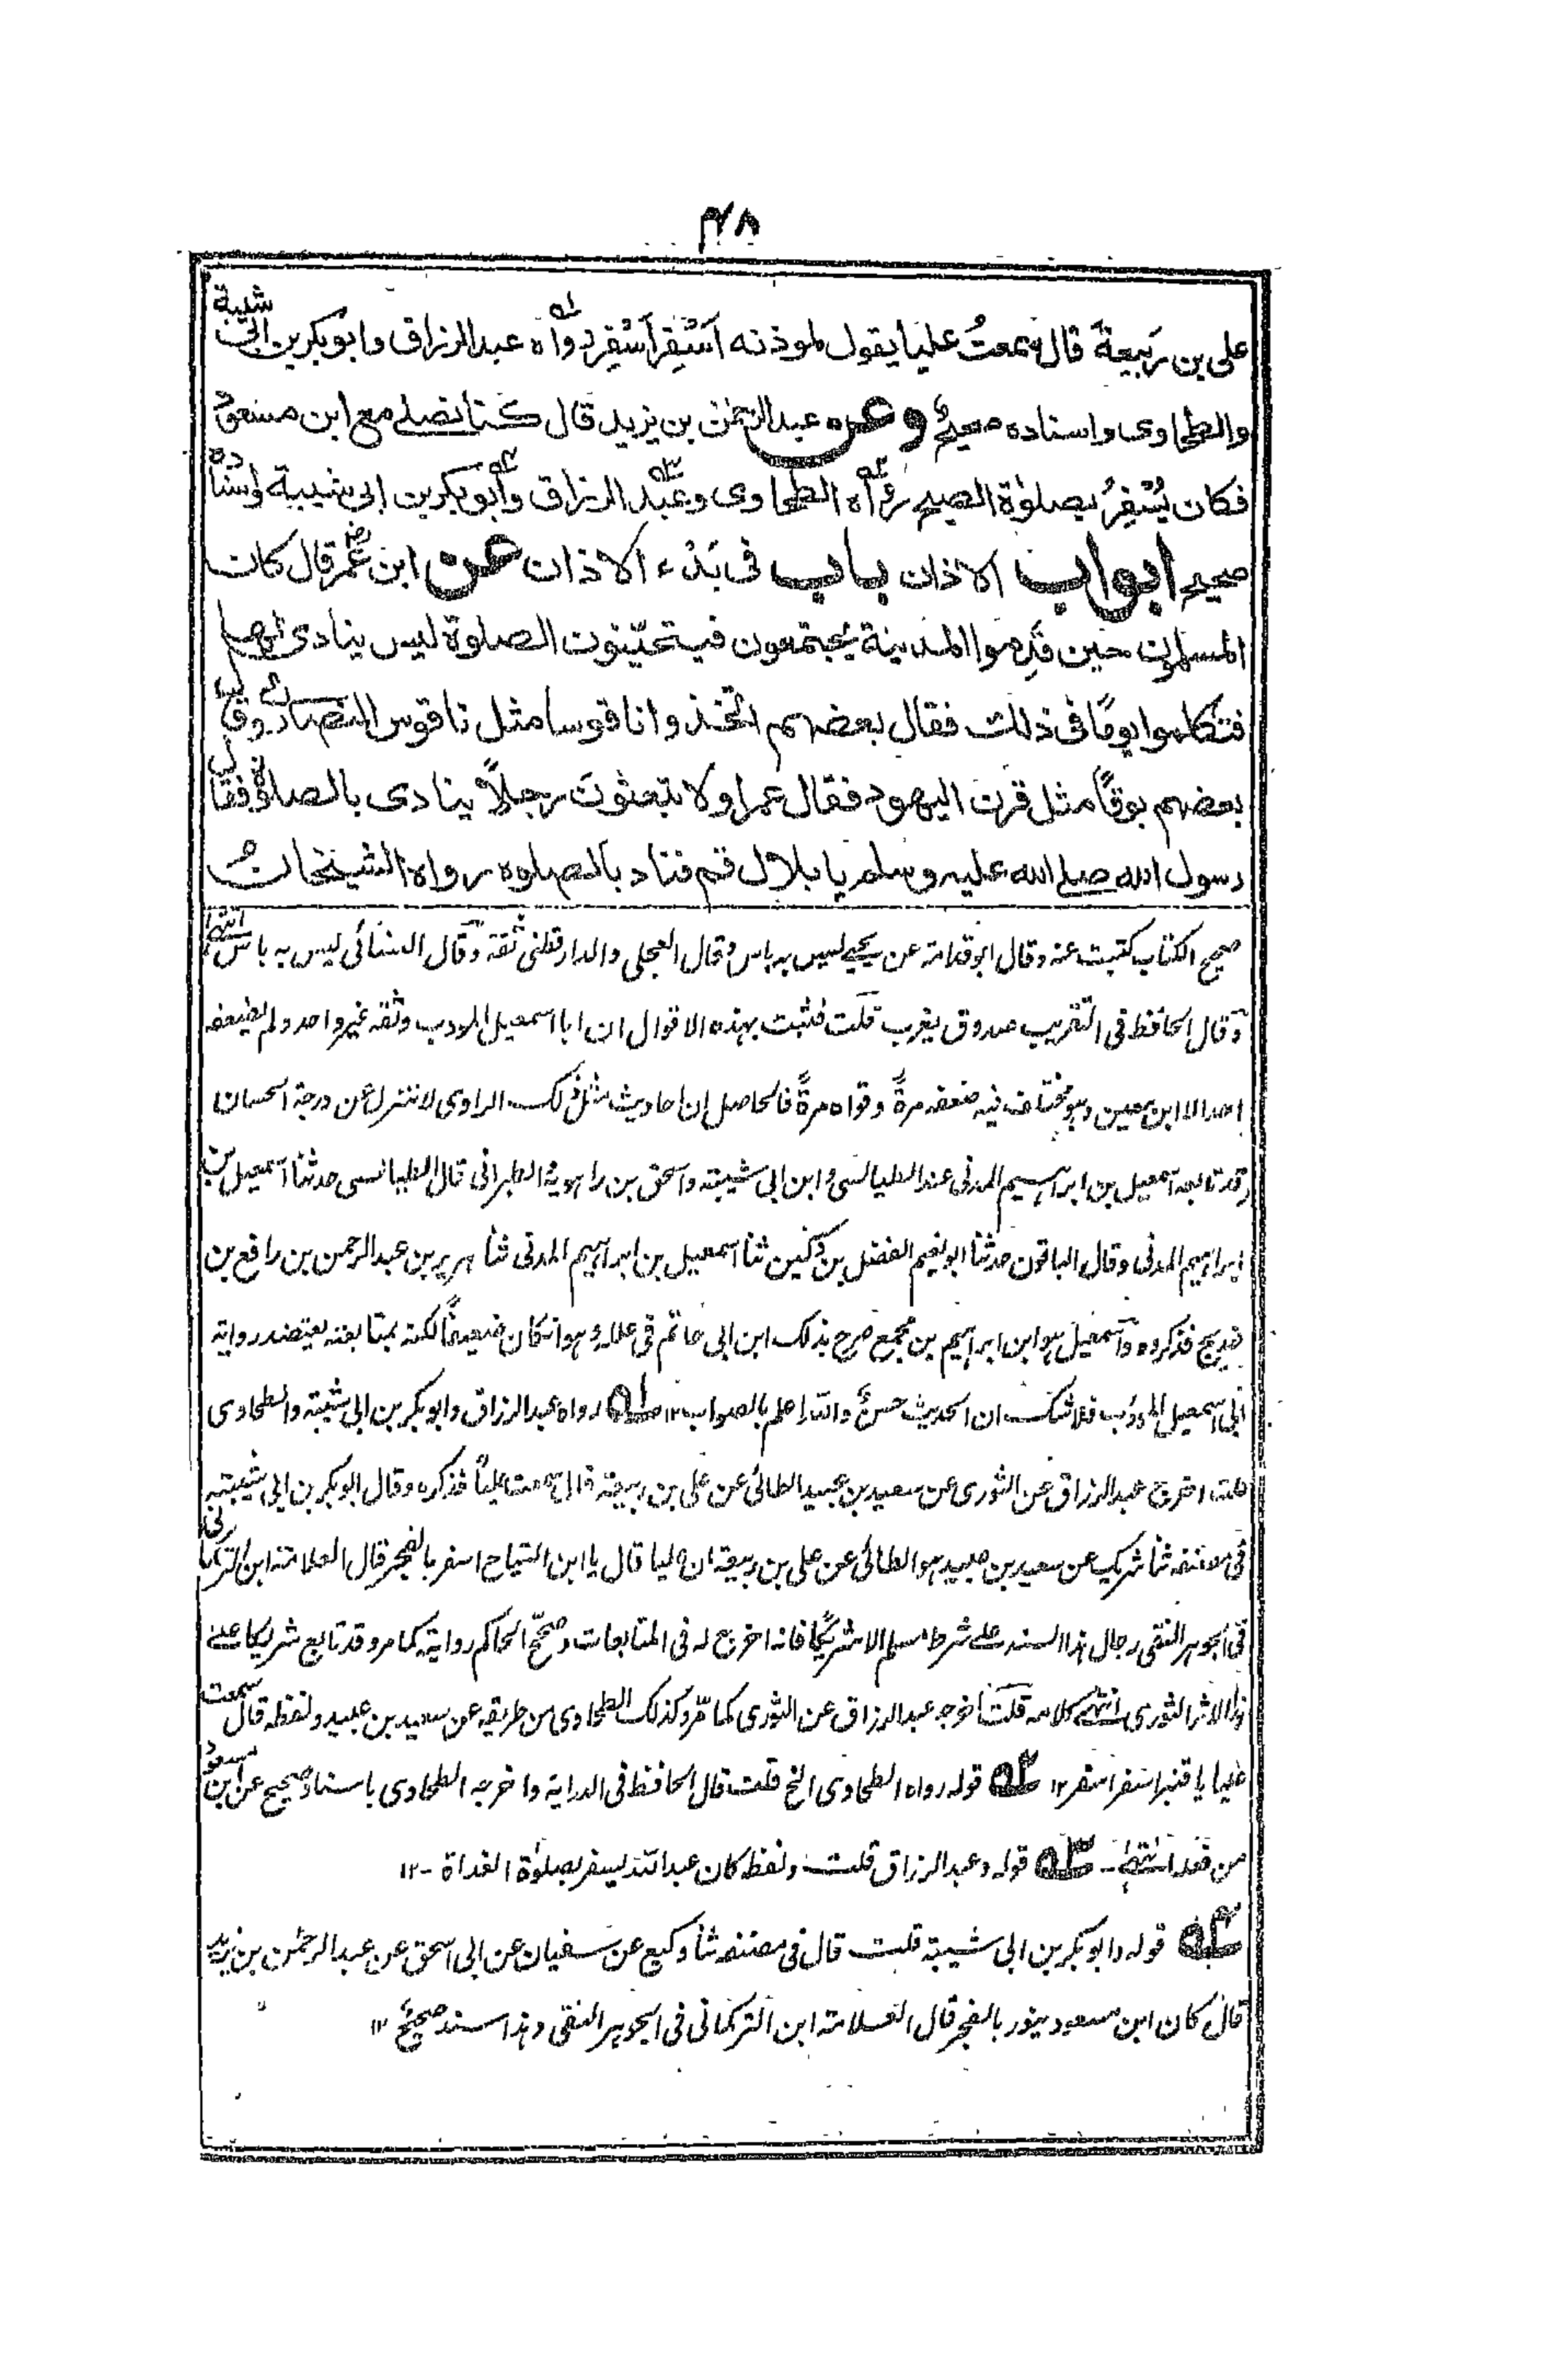 ٤٨
على بن رَبيعةَ قال سمعتُ عليا يقول لموذنه اَسْفِرْ اَسْفِرْ رواه عبد الرزاق وابوبكربن ابى شيبة
والطحاوى واسناده صحيحٌ وعن عبد الرحمٰن بن يزيد قال كنا نصلے مع ابن مسعودٍ
فكان يُسْفِرُ بصلوٰة الصبح رواه الطحاوى وعبد الرزاق وابوبكربن ابى شيبة واسناده
صحيح ابواب الاذان باب فى بَدْء الاذان عن ابن عُمرؓ قال كان
المسلمون حين قَدِموا المدينة يجتمعون فيتحيّنون الصلوة ليس ينادى لها
فتكلموا يومًا فى ذلك فقال بعضهم اتخذوا ناقوسا مثل ناقوس النصارى وقال
بعضهم بوقًا مثل قرن اليهود فقال عمر اولا تبعثون رجلاً ينادى بالصلوٰة فقال
رسول الله صلے الله عليہ وسلم يا بلال قم فناد بالصلوه رواه الشيخانُ
صحيح الكتاب كتبت عنه وقال ابوقدامة عن يحيے ليس به باس وقال العجلى والدارقطنى ثقة وقال النسائى ليس به باس انتهے
وقال الحافظ فى التقريب صدوق يغرب قلت فثبت بهذه الاقوال ان ابا اسمعيل المودب وثقه غير واحد ولم يضعفه
احد الا ابن معين وهو مختلف فيه ضعفه مرةً وقواه مرةً فالحاصل ان احاديث مثل ذلك الراوى لا تنزل عن درجة الحسان
وقد تابعه اسمعيل بن ابراهيم المدنى عند الطيالسى وابن ابى شيبة واسحق بن راهويه والطبرانى قال الطيالسى حدثنا اسمعيل بن
ابراهيم المدنى وقال الباقون حدثنا ابونعيم الفضل بن دُكين ثنا اسمعيل بن ابراهيم المدنى ثنا هرير بن عبد الرحمن بن رافع بن
خديج فذكروه واسمعيل هو ابن ابراهيم بن مجمع صرح بذلك ابن ابى حاتم فى علله وهو ان كان ضعيفًا لكنه بمتابعته يعتضد رواية
ابى اسمعيل المؤدب فلا شك ان الحديث حسنٌ والله اعلم بالصواب ١٢ ١ه رواه عبد الرزاق وابوبكر بن ابى شيبة والطحاوى
قلت اخرج عبد الرزاق عن الثورى عن سعيد بن عبيد الطائى عن على بن ربيعة قال سمعت علياً فذكره وقال ابوبكر بن ابى شيبة
فى مصنفه ثنا شريك عن سعيد بن عبيد هو الطائى عن على بن ربيعة ان عليا قال يا ابن التياح اسفر بالفجر قال العلامة ابن التركمانى
فى الجوهر النقى رجال هذا السند علے شرط مسلم الا شريكًا فانه اخرج له فى المتابعات وصحّح الحاكم رواية كما مر وقد تابع شريكا علے
هذا الاثر الثورى انتهے كلامه قلت اخرجه عبد الرزاق عن الثورى كما مرّ وكذلك الطحاوى من طريقه عن سعيد بن عبيد ولفظه قال سمعت
عليا يا قنبر اسفر اسفر ١٢ ٢ه قوله رواه الطحاوى الخ قلت قال الحافظ فى الدراية واخرجه الطحاوى باسناد صحيح عن ابن مسعود
من فعله انتهے - ٣ه قوله وعبد الرزاق قلت ولفظه كان عبد الله يسفر بصلوٰة الغداة - ١٢
٤ه قوله وابوبكر بن ابى شيبة قلت قال فى مصنفه ثنا وكيع عن سفيان عن ابى اسحق عن عبد الرحمٰن بن يزيد
قال كان ابن مسعود ينور بالفجر قال العلامة ابن التركمانى فى الجوهر النقى وهذا سند صحيحٌ ١٢